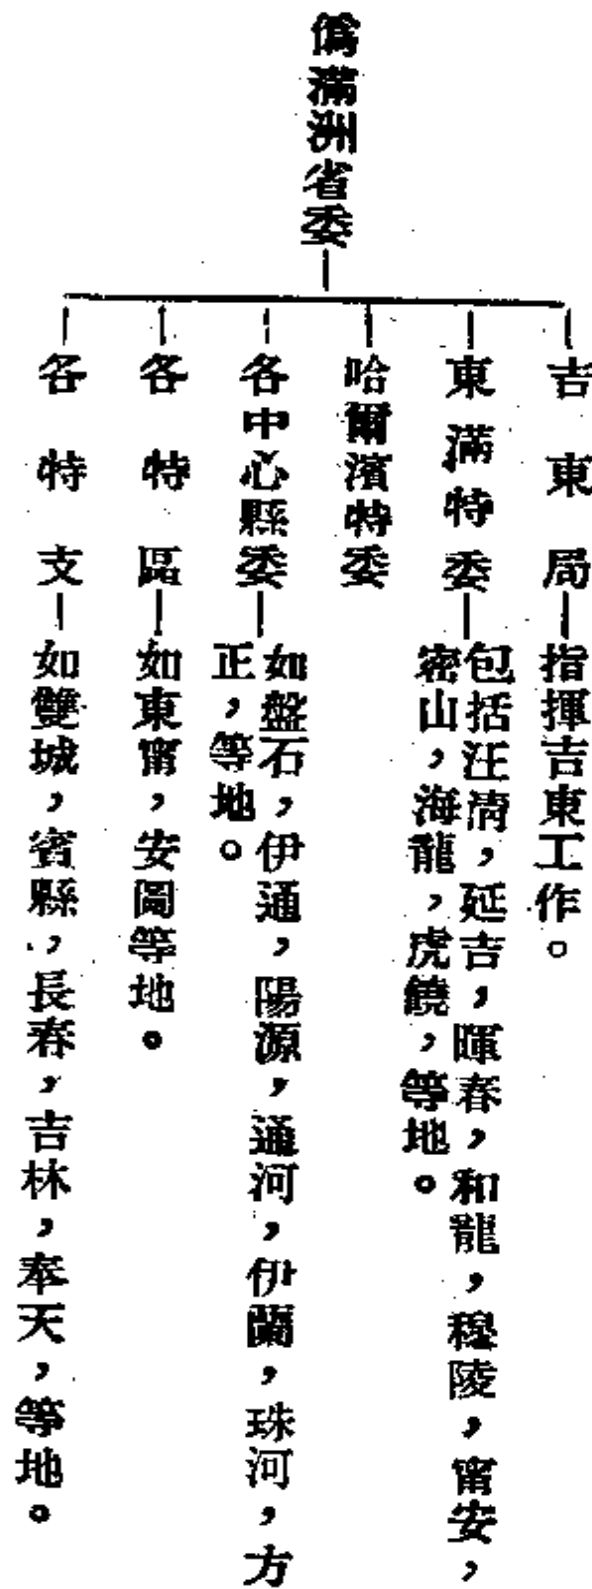 僞滿洲省委
吉東局
指揮吉東工作。
東滿特委
包括汪淸，延吉，暉春，和龍，穆陵，甯安，
密山，海龍，虎饒，等地。
哈爾濱特委
各中心縣委
如盤石，伊通，陽源，通河，伊蘭，珠河，方
正，等地。
各特區
如東甯，安圖等地。
各特支
如雙城，賓縣，長春，吉林，奉天，等地。